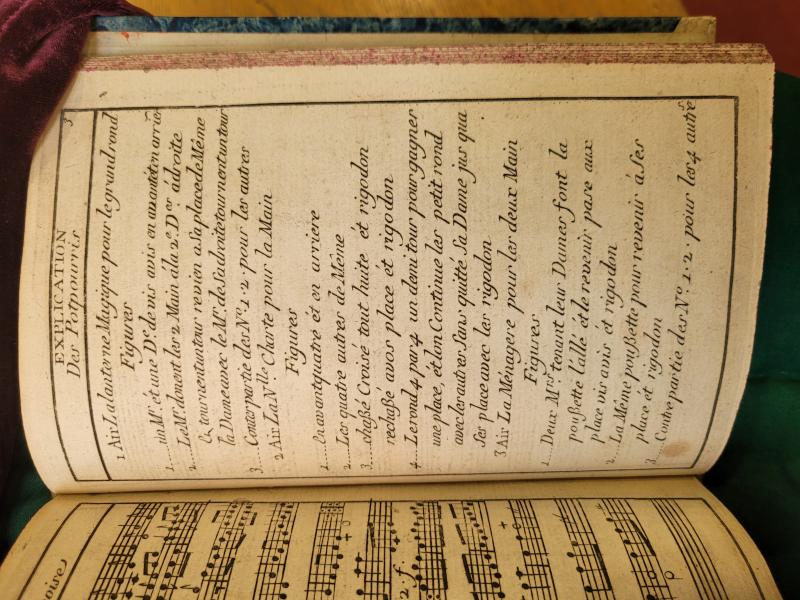 EXPLICATION
3
Des Potpourris.
1 Air La lanterne Magique pour le grand rond
Figures
1.... un Mr. et une De. de vis avis en avant et en arriere
2.... Le Mr. donent les 2 Main á la 2e. Der. á droite
& tournent un tour revien a sa place de Même
la Dame avec le Mr. de sa droite tournent un tour
3.... Conterpartie des No. 1. 2. pour les autres
2 Air La Nlle Charte pour la Main
Figures
1.... En avant quatré et en arriere
2.... Les quatre autres de Même
3.... chaßé Croisé tout huite et rigodon
rechaßé avos placé et rigodon
4.... Le rond 4 par 4 un demi tour pour gagner
une place, et l'on Continue les petit rond
avec les autres Sans quitté Sa Dame jus qua
Ses place avec les rigodon
3 Air La Ménagere pour les deux Main
Figures
1.... Deux Mrs. tenant leur Dames font la
poußette l'allé et le revenir pase aux
place vis avis et rigodon
2.... La Même poußette pour revenir á Ses
place et rigodon
3.... Contre partie des No. 1. 2. pour les 4 autrs
oises
2 f.